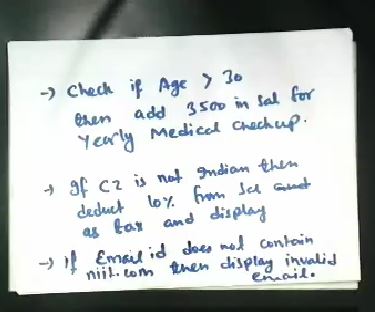 → Check if Age > 30
then add 3500 in Sal for
Yearly Medical Checkup.
→ If CZ is not Indian then
deduct 10% from Sal amt
as tax and display
→ If Email id does not contain
niit.com then display invalid
email.